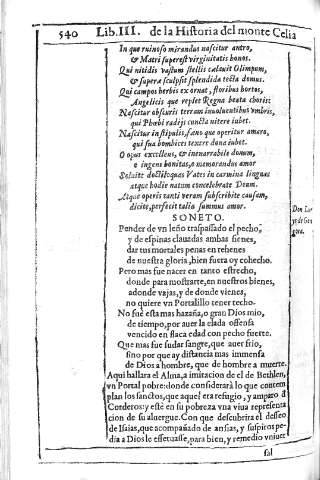 540 Lib.III. de la Historia del monte Celia
In quo ruinoso mirandus nascitur antro,
& Matri superest virginitatis honos.
Qui nitidis vastum stellis cælauit Olimpum,
& supera sculpsit splendida tecta domus.
Qui campos herbis exornat, floribus hortos,
Angelicis que replet Regna beata choris:
Nascitur obscuris terram inuoluentibus vmbris,
qui Phœbi radijs cuncta nitere iubet.
Nascitur in stipulis, fœno que operitur amaro,
qui sua hombices texere dona iubet.
O opus excellens, & inenarrabile donum,
o ingens bonitas, o memorandus amor
Soluite doctiloquas Vates in carmina linguas
atque hodie natum concelebrate Deum.
Atque operis tanti veram subscribite causam,
dicite, perfecit talia summus amor.
SONETO.
Pender de vn leño traspassado el pecho,
y de espinas clauadas ambas sienes,
dar tus mortales penas en rehenes
de nuestra gloria, bien fuera oy cohecho.
Pero mas fue nacer en tanto estrecho,
donde para mostrarte, en nuestros bienes,
adonde vajas, y de donde vienes,
no quiere vn Portalillo tener techo.
No fue esta mas hazaña, o gran Dios mio,
de tiempo, por auer la elada offensa
vencido en flaca edad con pecho fuerte.
Que mas fue sudar sangre, que auer frio,
sino por que ay distancia mas immensa
de Dios a hombre, que de hombre a muerte.
Aqui hallara el Alma, a imitacion de el de Bethlen,
vn Portal pobre: donde considerarà lo que contem
plan los sanctos, que aquel era refugio, y amparo d
Corderos: y esté en su pobreza vna viua representa
cion de su aluergue. Con que descubrira el desseo
de Isaias, que acompañado de ansias, y suspiros pe-
dia a Dios le effetuasse, para bien, y remedio vniuer
sal
Don Lui
ys de Gon
gora.